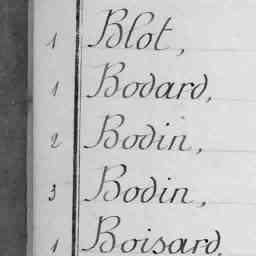 1 Blot,
1 Bodard,
2 Bodin,
3 Bodin,
1 Boisard,